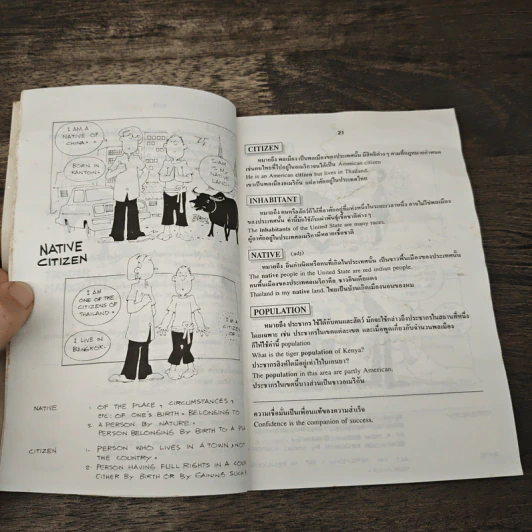 I AM A
NATIVE OF
CHINA.
BORN IN
KANTON
SIAM
IS MY
NATIVE
LAND
NATIVE
CITIZEN
I AM
ONE OF THE
CITIZENS OF
THAILAND.
I LIVE IN
BANGKOK.
NATIVE 1. OF THE PLACE, CIRCUMSTANCES,
ETC: OF ONE'S BIRTH. BELONGING TO
2. A PERSON BY NATURE.
PERSON BELONGING BY BIRTH TO A
CITIZEN 1. PERSON WHO LIVES IN A TOWN, NOT
THE COUNTRY.
2. PERSON HAVING FULL RIGHTS IN A
EITHER BY BIRTH OR BY GAINING SUCH
23
CITIZEN
หมายถึง พลเมือง เป็นพลเมืองของประเทศนั้น มีสิทธิต่างๆ ตามที่กฎหมายกำหนด
เช่นคนไทยที่ไปอยู่ในอเมริกาจนได้เป็น American citizen
He is an American citizen but lives in Thailand.
เขาเป็นพลเมืองอเมริกัน แต่อาศัยอยู่ในประเทศไทย
INHABITANT
หมายถึง คนหรือสัตว์ก็ได้ที่อาศัยอยู่ที่แห่งหนึ่งในระยะเวลาหนึ่ง อาจไม่ใช่พลเมือง
ของประเทศนั้น คำนี้มักใช้กับเผ่าพันธุ์เชื้อชาติต่าง ๆ
The inhabitants of the United States are many races.
ผู้อาศัยอยู่ในประเทศอเมริกามีหลายเชื้อชาติ
NATIVE (adj)
หมายถึง ถิ่นกำเนิดหรือคนที่เกิดในประเทศนั้น เป็นชาวพื้นเมืองของประเทศนั้น
The native people in the United States are red indian people.
คนพื้นเมืองของประเทศอเมริกาคือ ชาวอินเดียนแดง
Thailand is my native land. ไทยเป็นบ้านเกิดเมืองนอนของผม
POPULATION
หมายถึง ประชากร ใช้ได้กับคนและสัตว์ มักจะใช้กล่าวถึงประชากรในสถานที่หนึ่ง
โดยเฉพาะ เช่น ประชากรในเขตแต่ละเขต และเมื่อพูดเกี่ยวกับจำนวนพลเมือง
ก็ให้ใช้คำนี้ population
What is the tiger population of Kenya?
ประชากรเสือที่เคนยามีอยู่เท่าไร
The population in this area are partly American.
ประชากรในเขตนี้บางส่วนเป็นชาวอเมริกัน
ความเชื่อมั่นเป็นเพื่อนแท้ของความสำเร็จ
Confidence is the companion of success.